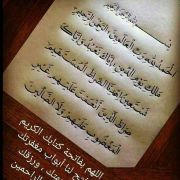 بسم الله الرحمن الرحيم
الحمد لله رب العالمين الرحمن الرحيم
مالك يوم الدين إياك نعبد وإياك
نستعين اهدنا الصراط المستقيم
صراط الذين أنعمت عليهم غير
المغضوب عليهم ولا الضالين
اللهم بفاتحة كتابك الكريم
افتح لنا أبواب مغفرتك
ورزقك
الراحمين